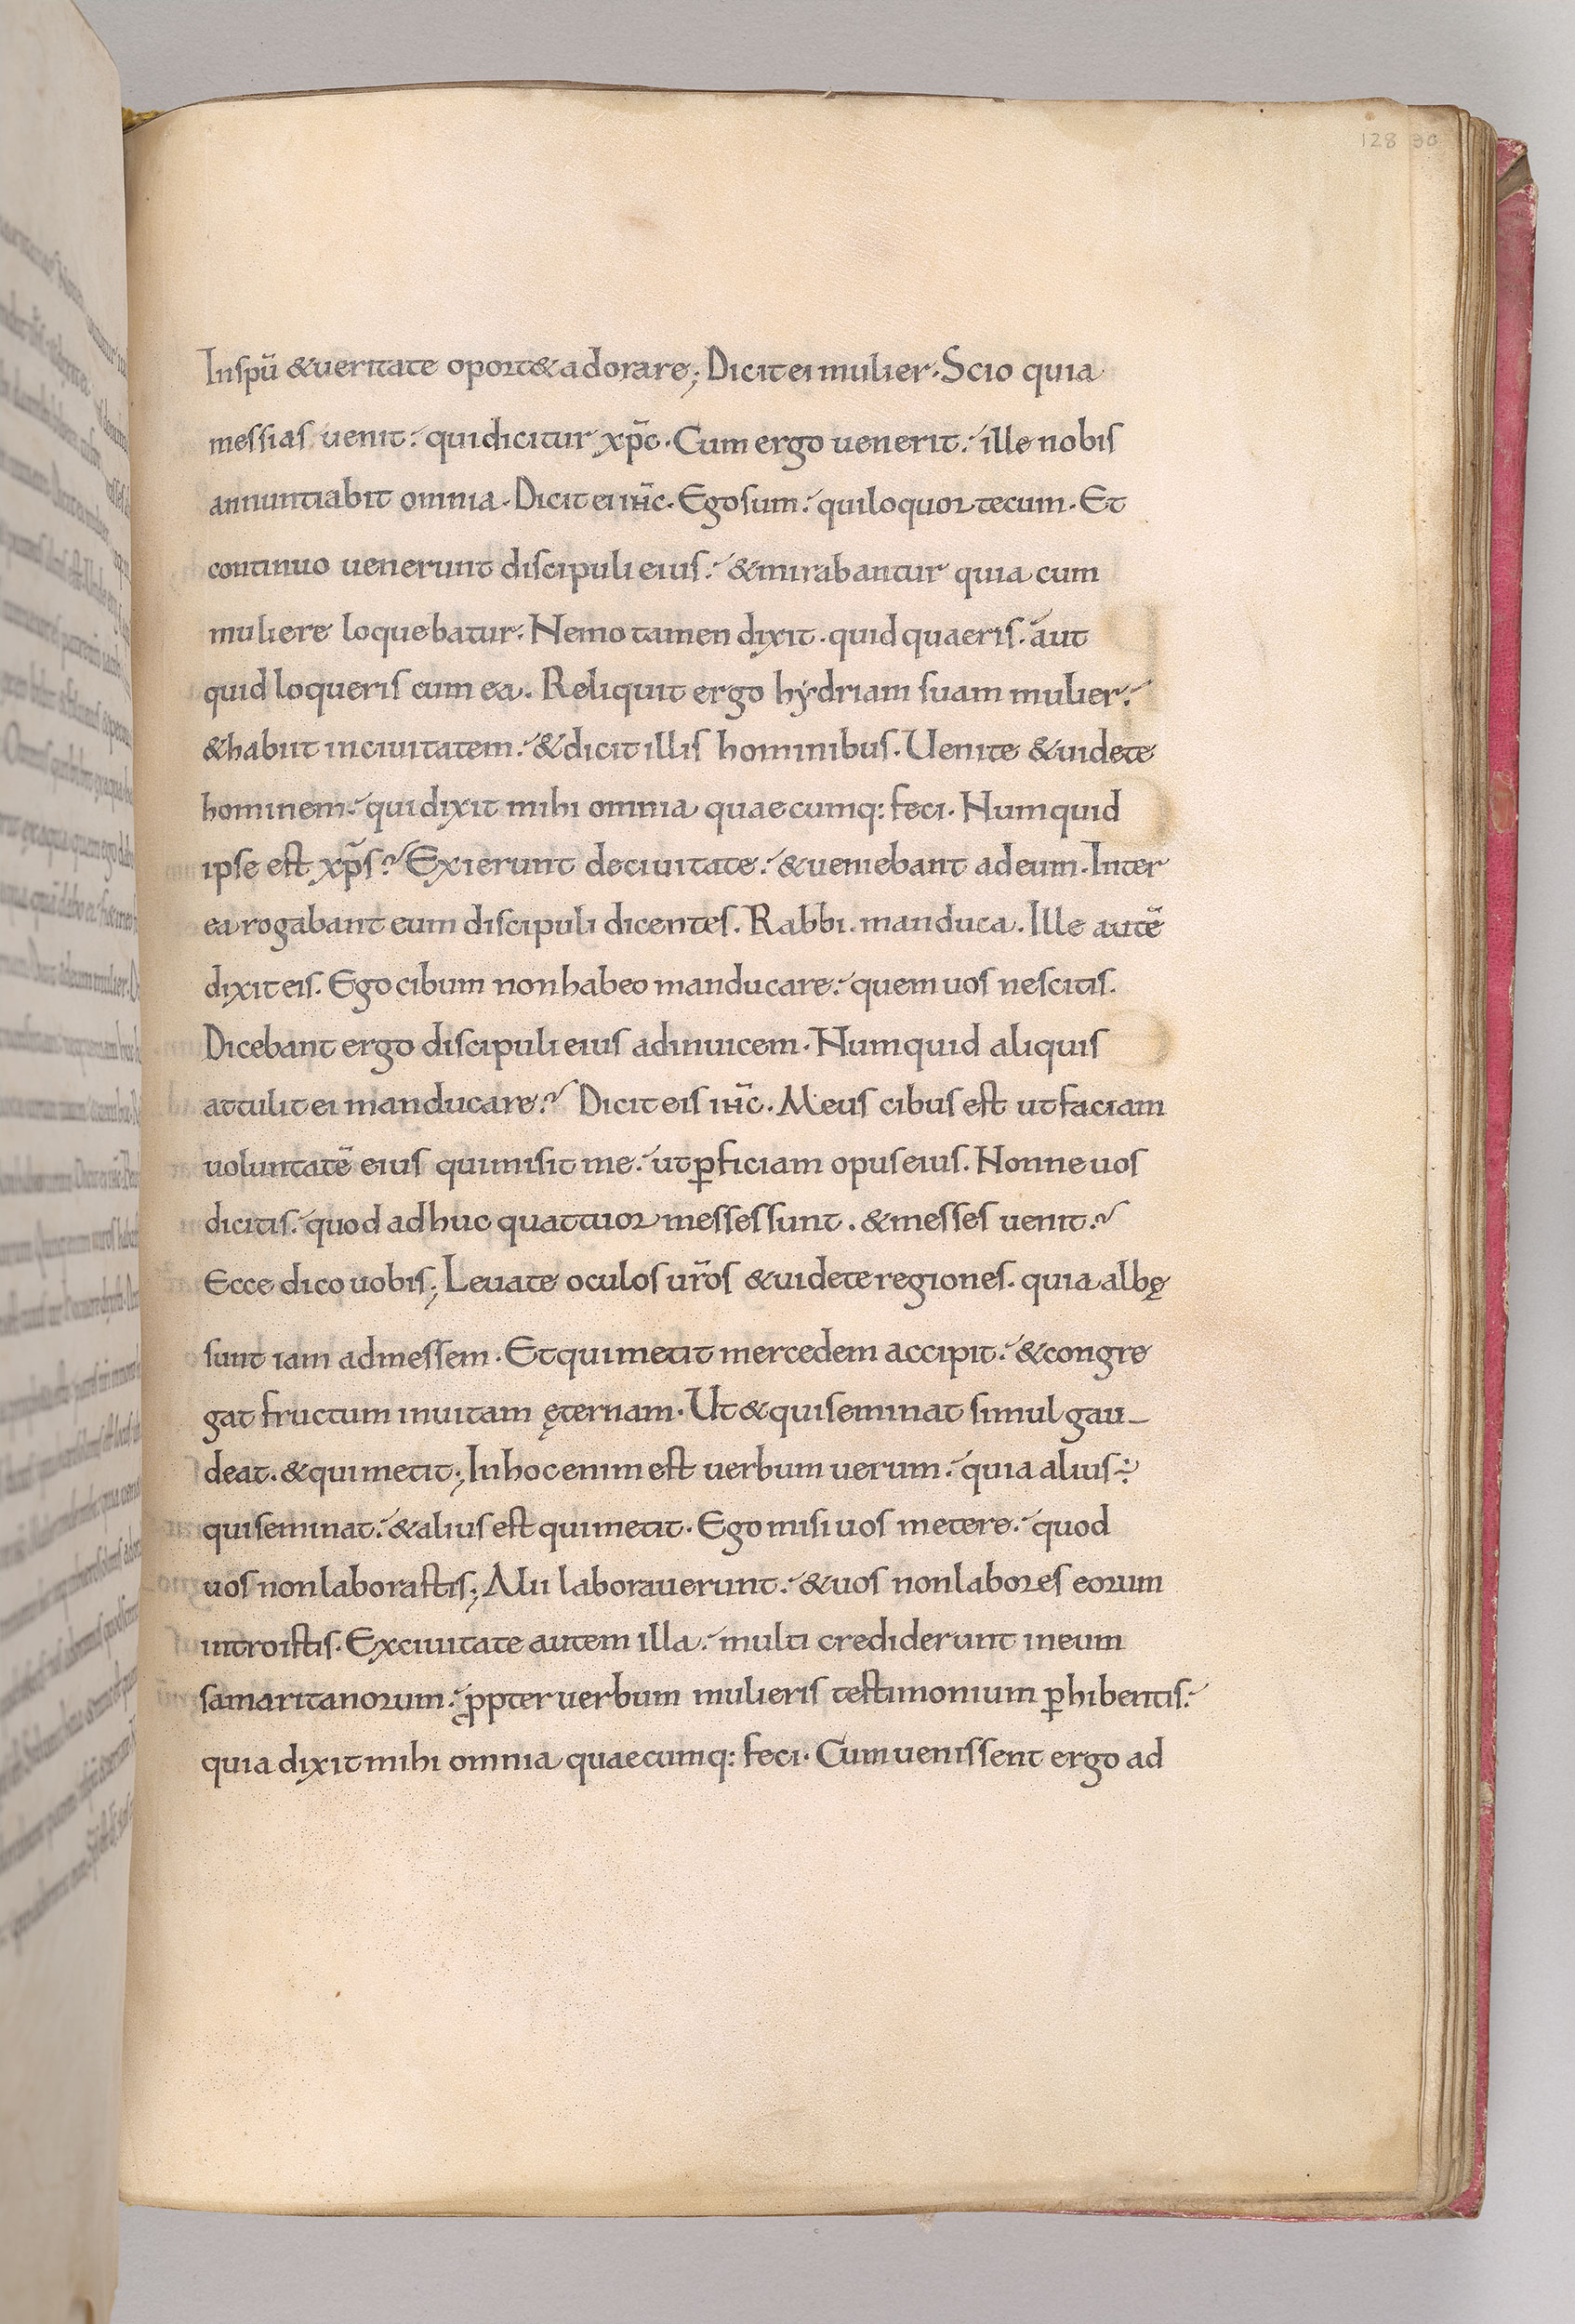 128 30
In sp̄u &ueritate oport& adorare; Dicit ei mulier. Scio quia
messias uenit. qui dicitur xp̄c. Cum ergo uenerit. ille nobis
annuntiabit omnia. Dicit ei ih̄c. Ego sum. qui loquor tecum. Et
continuo uenerunt discipuli eius. &mirabantur quia cum
muliere loquebatur. Nemo tamen dixit. quid quaeris. aut
quid loqueris cum ea. Reliquit ergo hẏdriam suam mulier.
&habiit in ciuitatem. &dicit illis hominibus. Uenite &uidete
hominem. qui dixit mihi omnia quaecumq: feci. Numquid
ipse est xp̄s? Exierunt de ciuitate. &ueniebant ad eum. Inter
ea rogabant eum discipuli dicentes. Rabbi. manduca. Ille autē
dixit eis. Ego cibum non habeo manducare. quem uos nescitis.
Dicebant ergo discipuli eius adinuicem. Numquid aliquis
attulit ei manducare? Dicit eis ih̄c. Meus cibus est ut faciam
uoluntatē eius qui misit me. ut ꝑficiam opus eius. Nonne uos
dicitis. quod adhuc quattuor messes sunt. &messes uenit?
Ecce dico uobis; Leuate oculos ur̄os &uidete regiones. quia albę
sunt iam ad messem. Et qui metit mercedem accipit. &congre
gat fructum in uitam ęternam. Ut &qui seminat simul gau-
deat. &qui metit; In hoc enim est uerbum uerum. quia alius÷
qui seminat. &alius est qui metit. Ego misi uos metere. quod
uos non laborastis; Alii laborauerunt. &uos non labores eorum
introistis. Ex ciuitate autem illa. multi crediderunt in eum
samaritanorum. ꝓpter uerbum mulieris testimonium ꝑhibentis.
quia dixit mihi omnia quaecumq: feci. Cum uenissent ergo ad